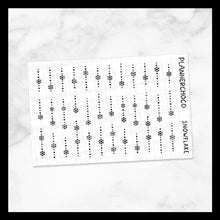 PLANNERCHOCO
SNOWFLAKE